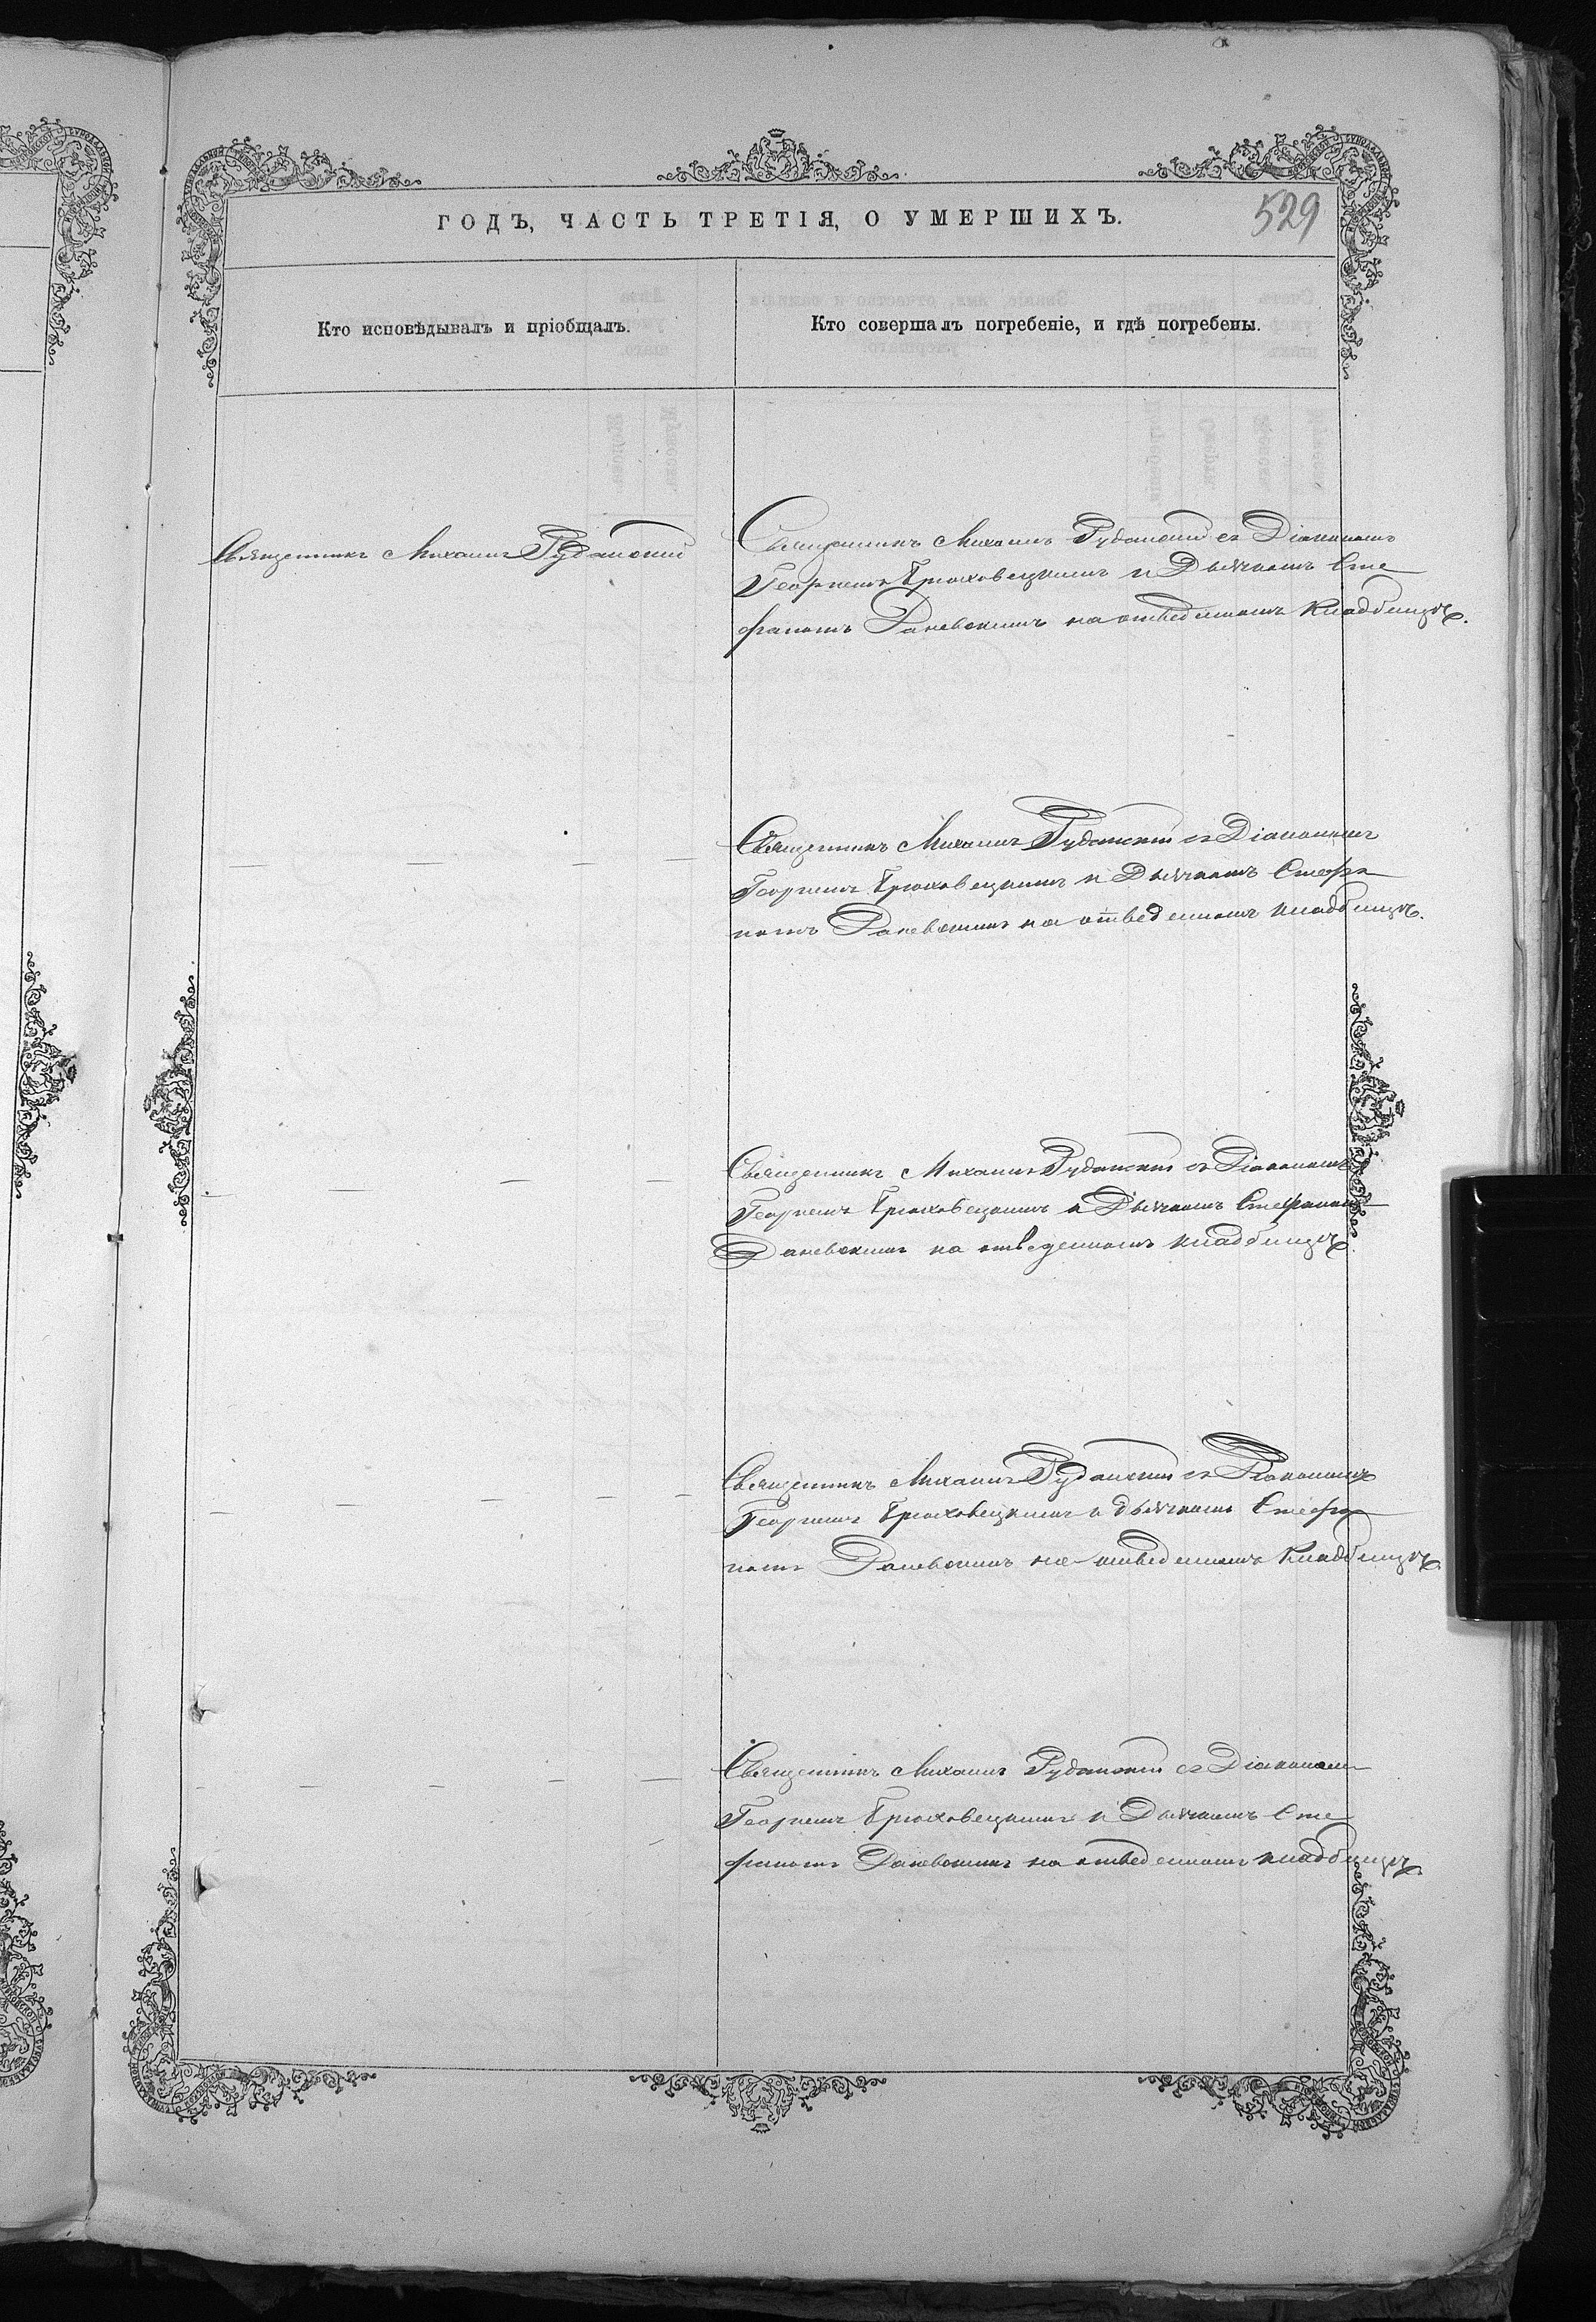 ГОДЪ, ЧАСТЬ ТРЕТІЯ, О УМЕРШИХЪ.
529
Кто исповѣдывалъ и пріобщалъ.
Кто совершалъ погребеніе, и гдѣ погребены.
Священникъ Михаилъ Руданскій
Священникъ Михаилъ Руданскій съ Діакономъ
Георгіемъ Брюховецкимъ и Дьячкомъ Сте
фаномъ Раневскимъ на отведенномъ кладбищѣ.
Священникъ Михаилъ Руданскій съ Діакономъ
Георгіемъ Брюховецкимъ и Дьячкомъ Стефа
номъ Раневскимъ на отведенномъ кладбищѣ.
Священникъ Михаилъ Руданскій съ Діакономъ
Георгіемъ Брюховецкимъ и Дьячкомъ Стефаномъ
Раневскимъ на отведенномъ кладбищѣ.
Священникъ Михаилъ Руданскій съ Діакономъ
Георгіемъ Брюховецкимъ и дьячкомъ Стефа
номъ Раневскимъ на отведенномъ кладбищѣ.
Священникъ Михаилъ Руданскій съ Діакономъ
Георгіемъ Брюховецкимъ и Дьячкомъ Сте
фаномъ Раневскимъ на отведенномъ кладбищѣ.